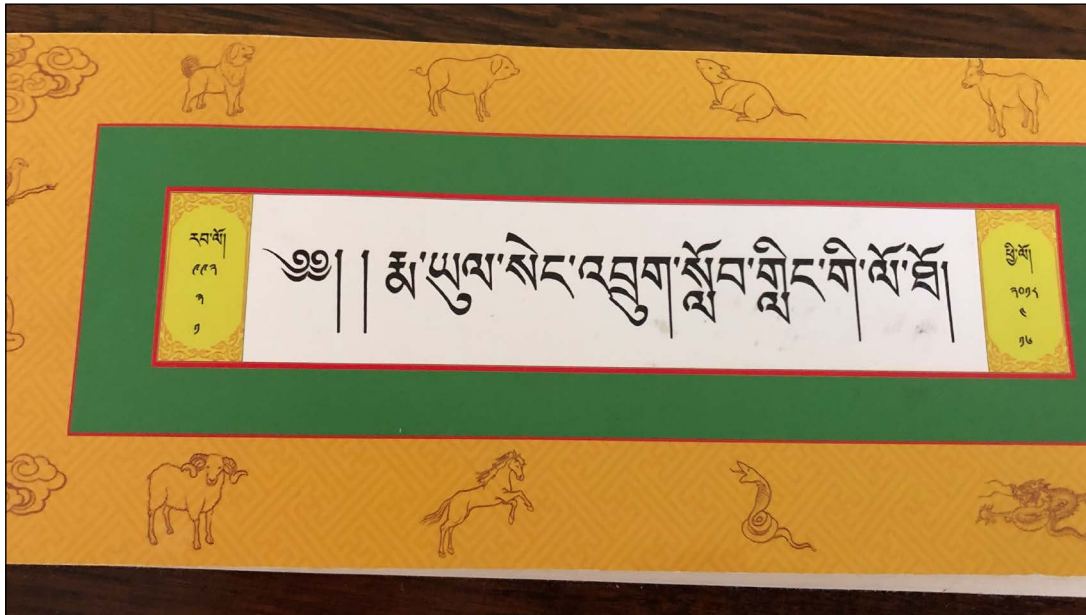 རབ་ལོ།
༩༩༢
༢
༡
༄༅། །རྨ་ཡུལ་སེང་འབྲུག་སློབ་གླིང་གི་ལོ་ཐོ།
ཕྱི་ལོ།
༢༠༡༨
༤
༡༦